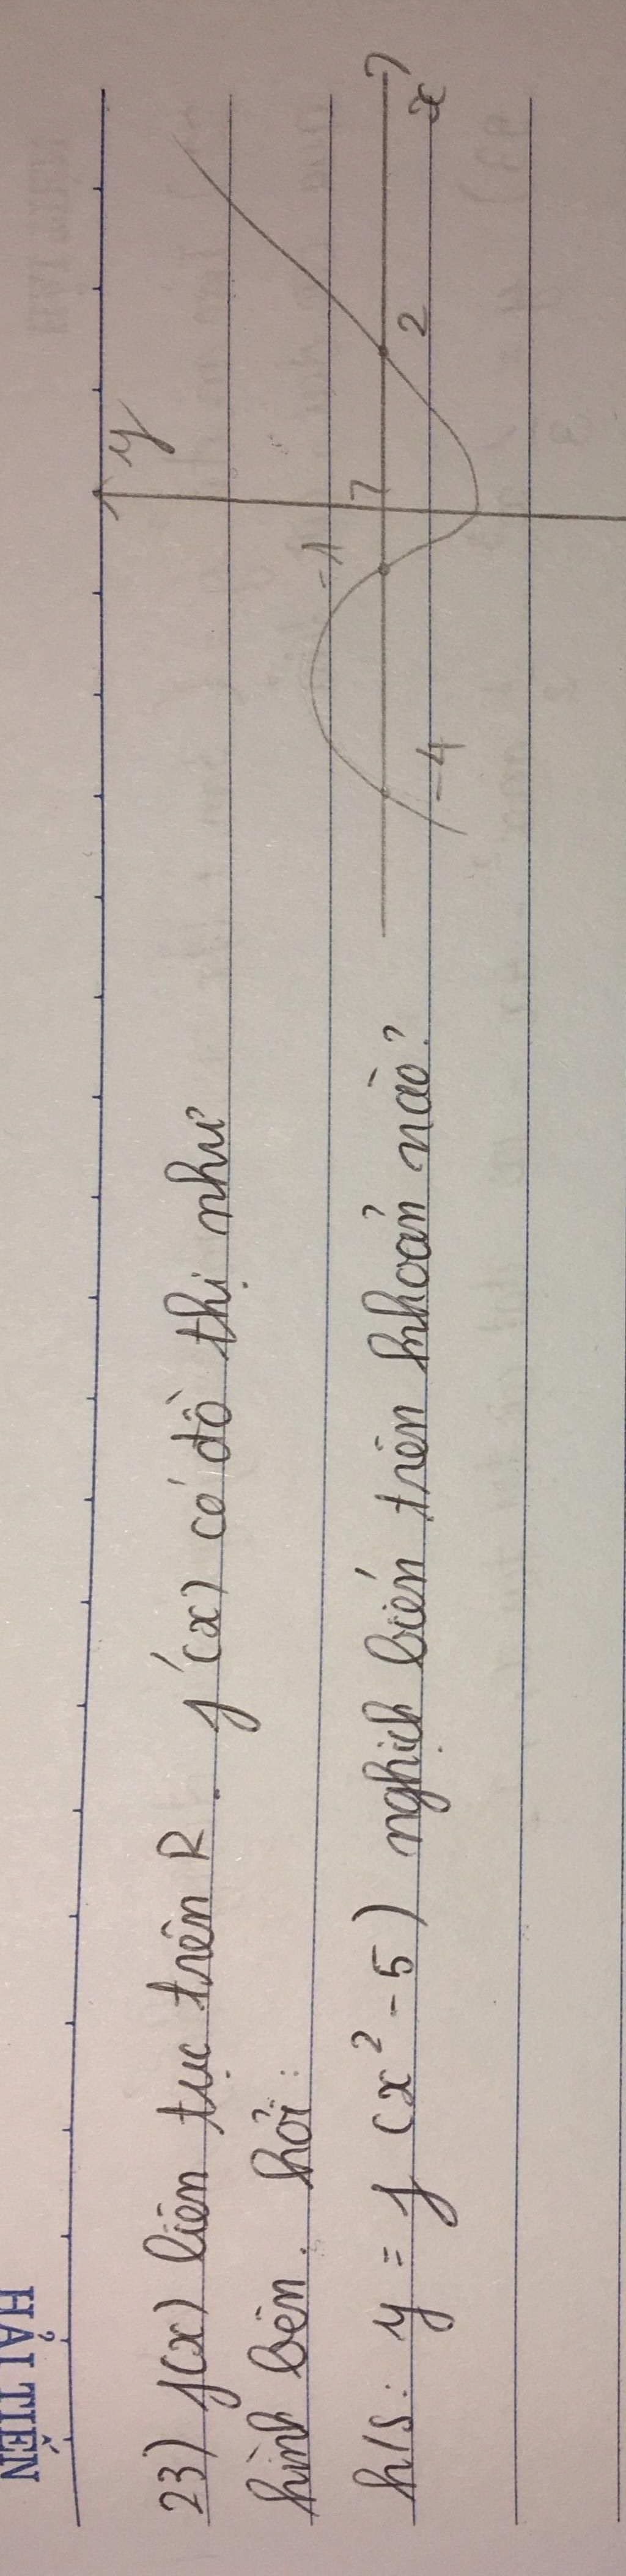 HẢI TIẾN
23) f(x) liên tục trên R. f'(x) có đồ thị như
hình bên. hỏi:
h/s: y = f (x² - 5) nghịch biến trên khoản nào?
y
-4
-1
2
x